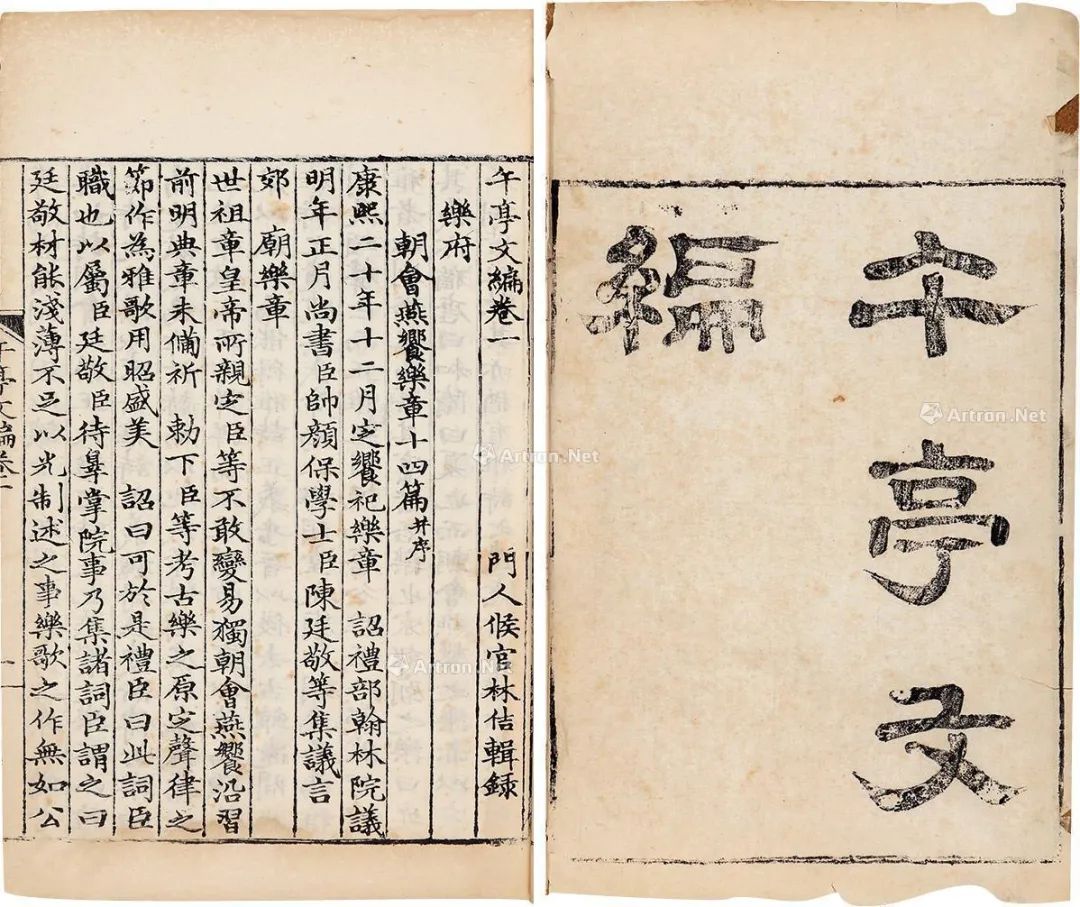 午亭文
編
午亭文編卷一
門人候官林佶輯録
樂府
朝會燕饗樂章十四篇并序
康熙二十年十二月定饗祀樂章 詔禮部翰林院議
明年正月尚書臣帥顔保學士臣陳廷敬等集議言
郊廟樂章
世祖章皇帝所親定臣等不敢變易獨朝會燕饗沿習
前明典章未備祈 勅下臣等考古樂之原定聲律之
節作為雅歌用昭盛美 詔曰可於是禮臣曰此詞臣
職也以屬臣廷敬臣待辠掌院事乃集諸詞臣謂之曰
廷敬材能淺薄不足以光制述之事樂歌之作無如公
午亭文編卷一
一
Artron.Net
Artron.Net
Artron.Net
Artron.Net